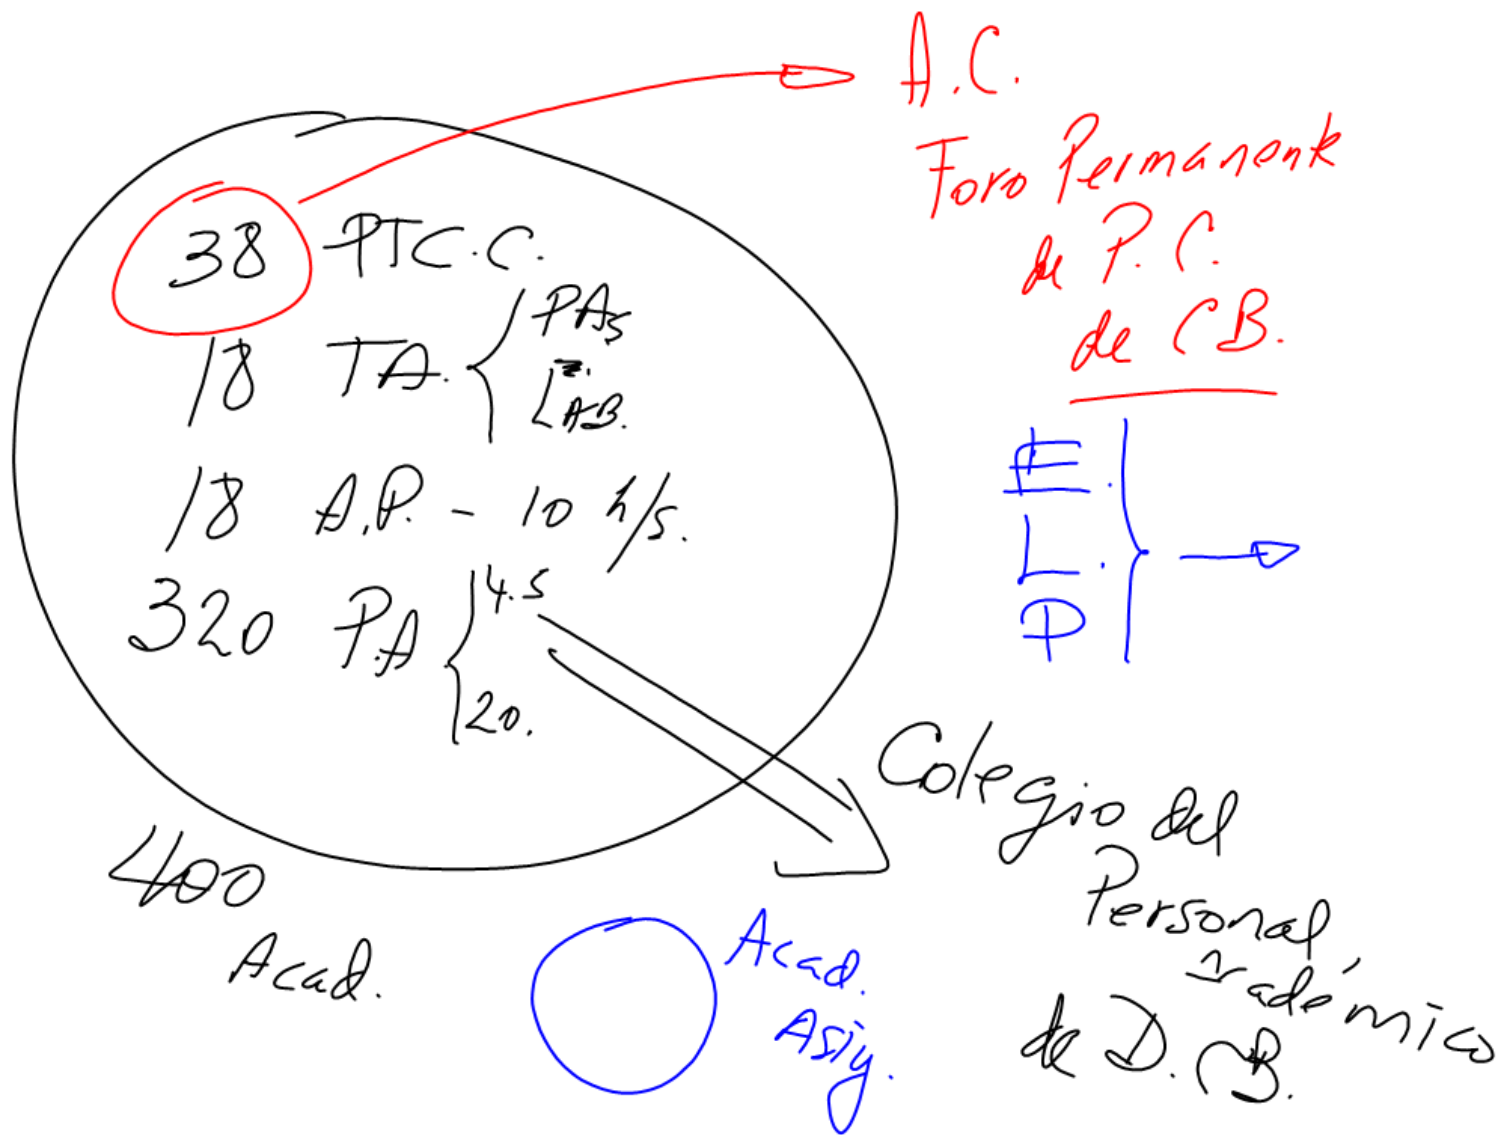 A.C.
Foro Permanente
de P.C.
de CB.
38 PTC.C.
18 TA. { PAs
LAB.
18 A.P. - 10 h/s.
320 P.A { 4.5
20.
E.
L.
P
400
Acad.
Colegio del
Personal
Académico
de D.CB.
Acad.
Asig.